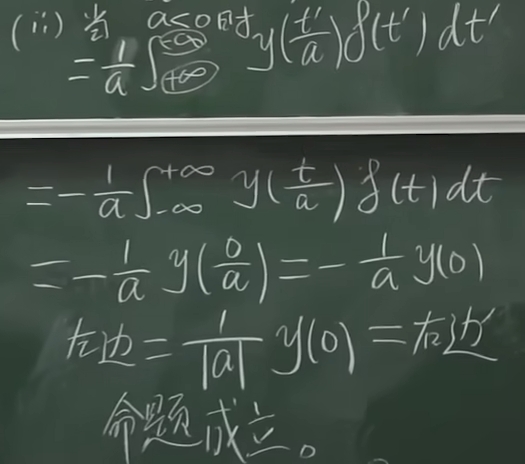 (ii) 当 a<0时
= 1/a ∫_{+∞}^{-∞} y(t'/a) δ(t') dt'
= -1/a ∫_{-∞}^{+∞} y(t/a) δ(t) dt
= -1/a y(0/a) = -1/a y(0)
左边 = 1/|a| y(0) = 右边
命题成立。